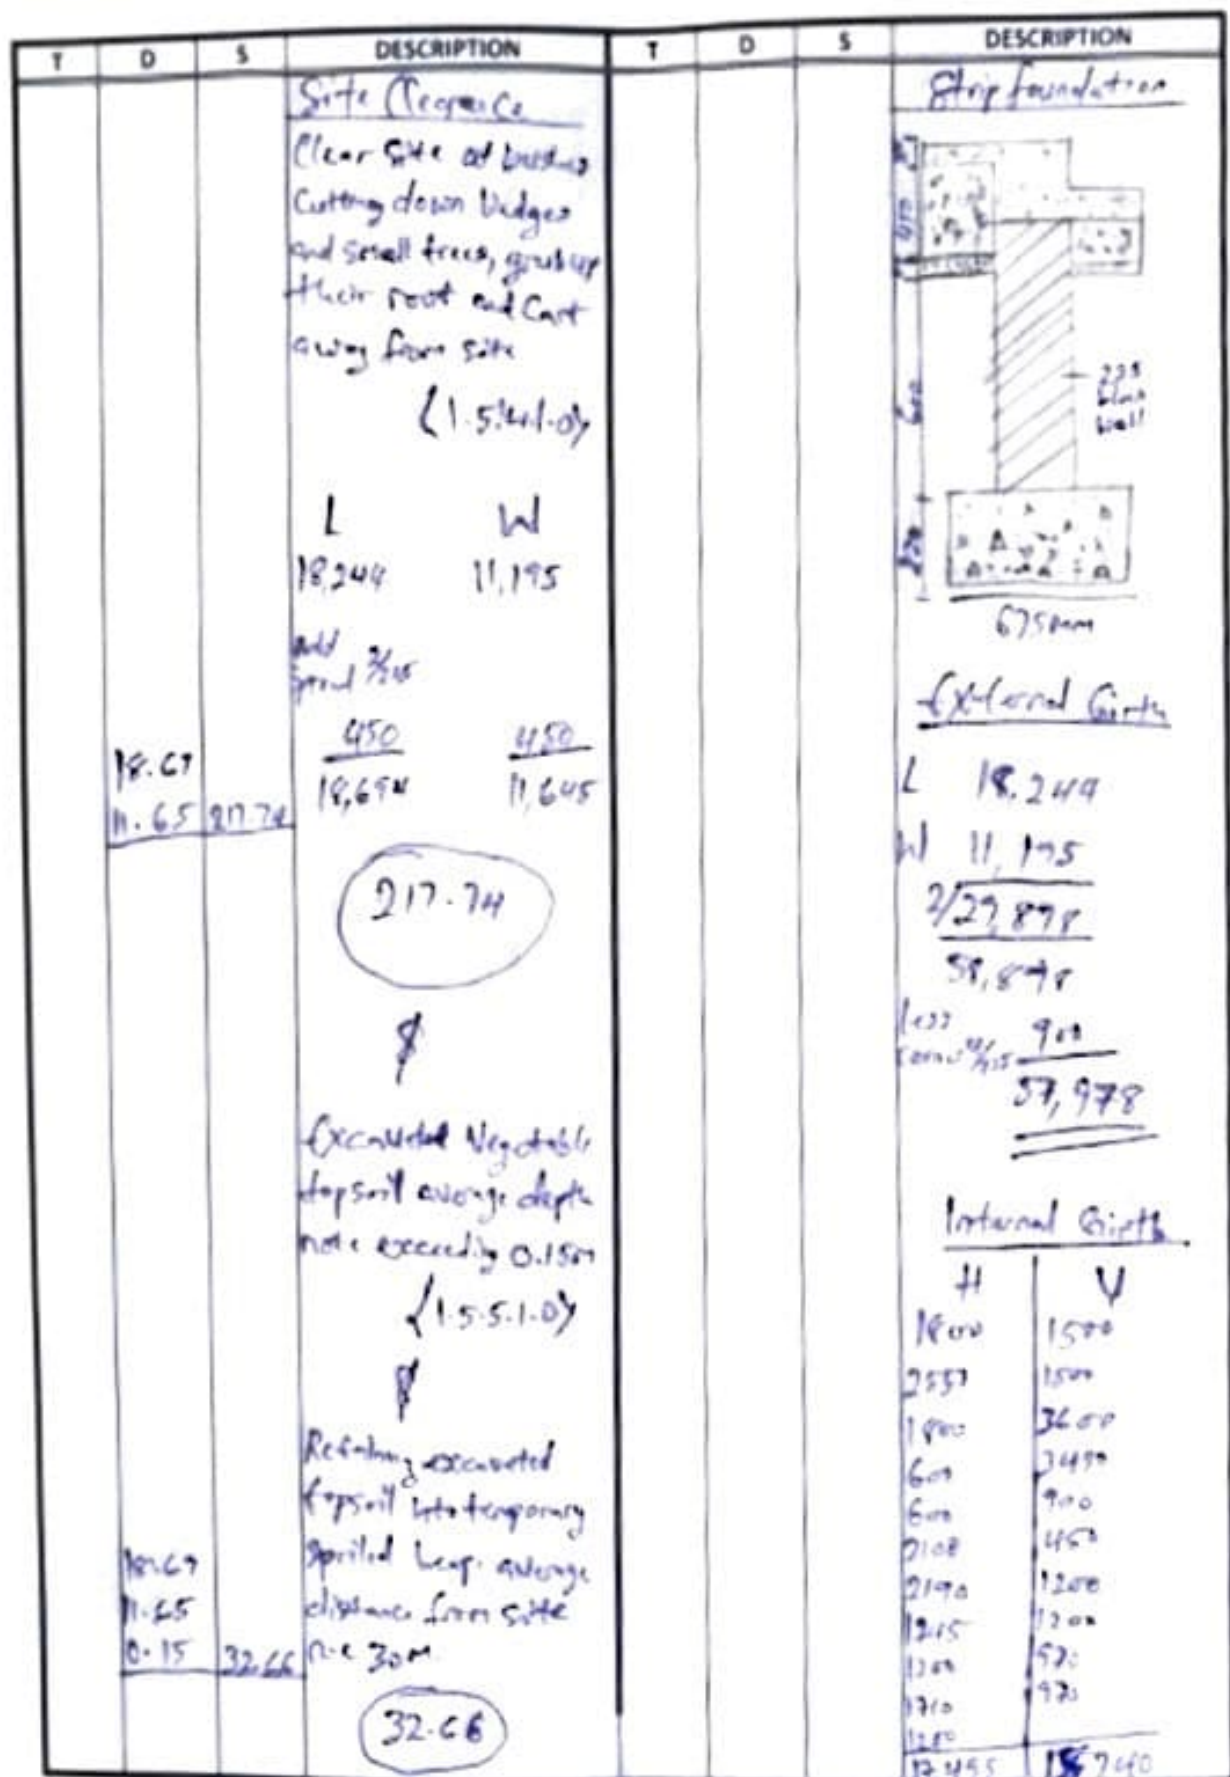 T D S DESCRIPTION
Site Clearance
Clear site of bushes
Cutting down hedges
and small trees, grub up
their root and Cart
away from site
{1.5.4.1.0}
L W
18,244 11,195
add
spread 2/225
450 450
18.69
18,694 11,645
11.65 217.74
217.74
&
Excavated Vegetable
topsoil average depth
note exceeding 0.15m
{1.5.5.1.0}
&
Retaining excavated
topsoil into temporary
Spoiled heap. average
18.69
11.65 distance from site
0.15 32.66 n.e 30m
32.66
T D S DESCRIPTION
Strip foundation
450
225
block
wall
600
675mm
External Girth
L 18.244
W 11,195
2/
58,878
less
900
57,978
Internal Girth
H V
1800 1500
2557 1500
1800 3600
600 3450
600 900
2108 450
2190 1200
1215 1200
1200 570
1710 970
1200